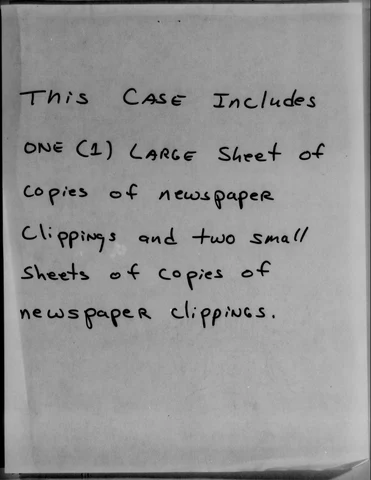 This CASE Includes
ONE (1) LARGE Sheet of
copies of newspaper
Clippings and two small
Sheets of copies of
newspapeR clippiNGS.